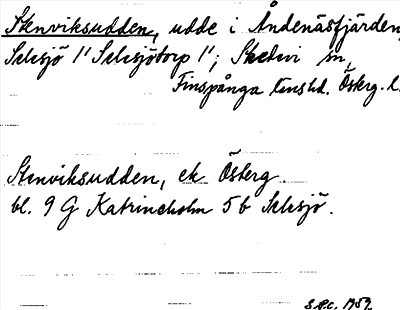 Stenviksudden, udde i Åndenäsfjärden,
Selesjö 1' Selesjötorp 1'; Skedevi sn,
Finspånga länshd. Österg. l.
Stenviksudden, ek Österg
bl. 9 G Katrineholm 5 b Selesjö.
1959.